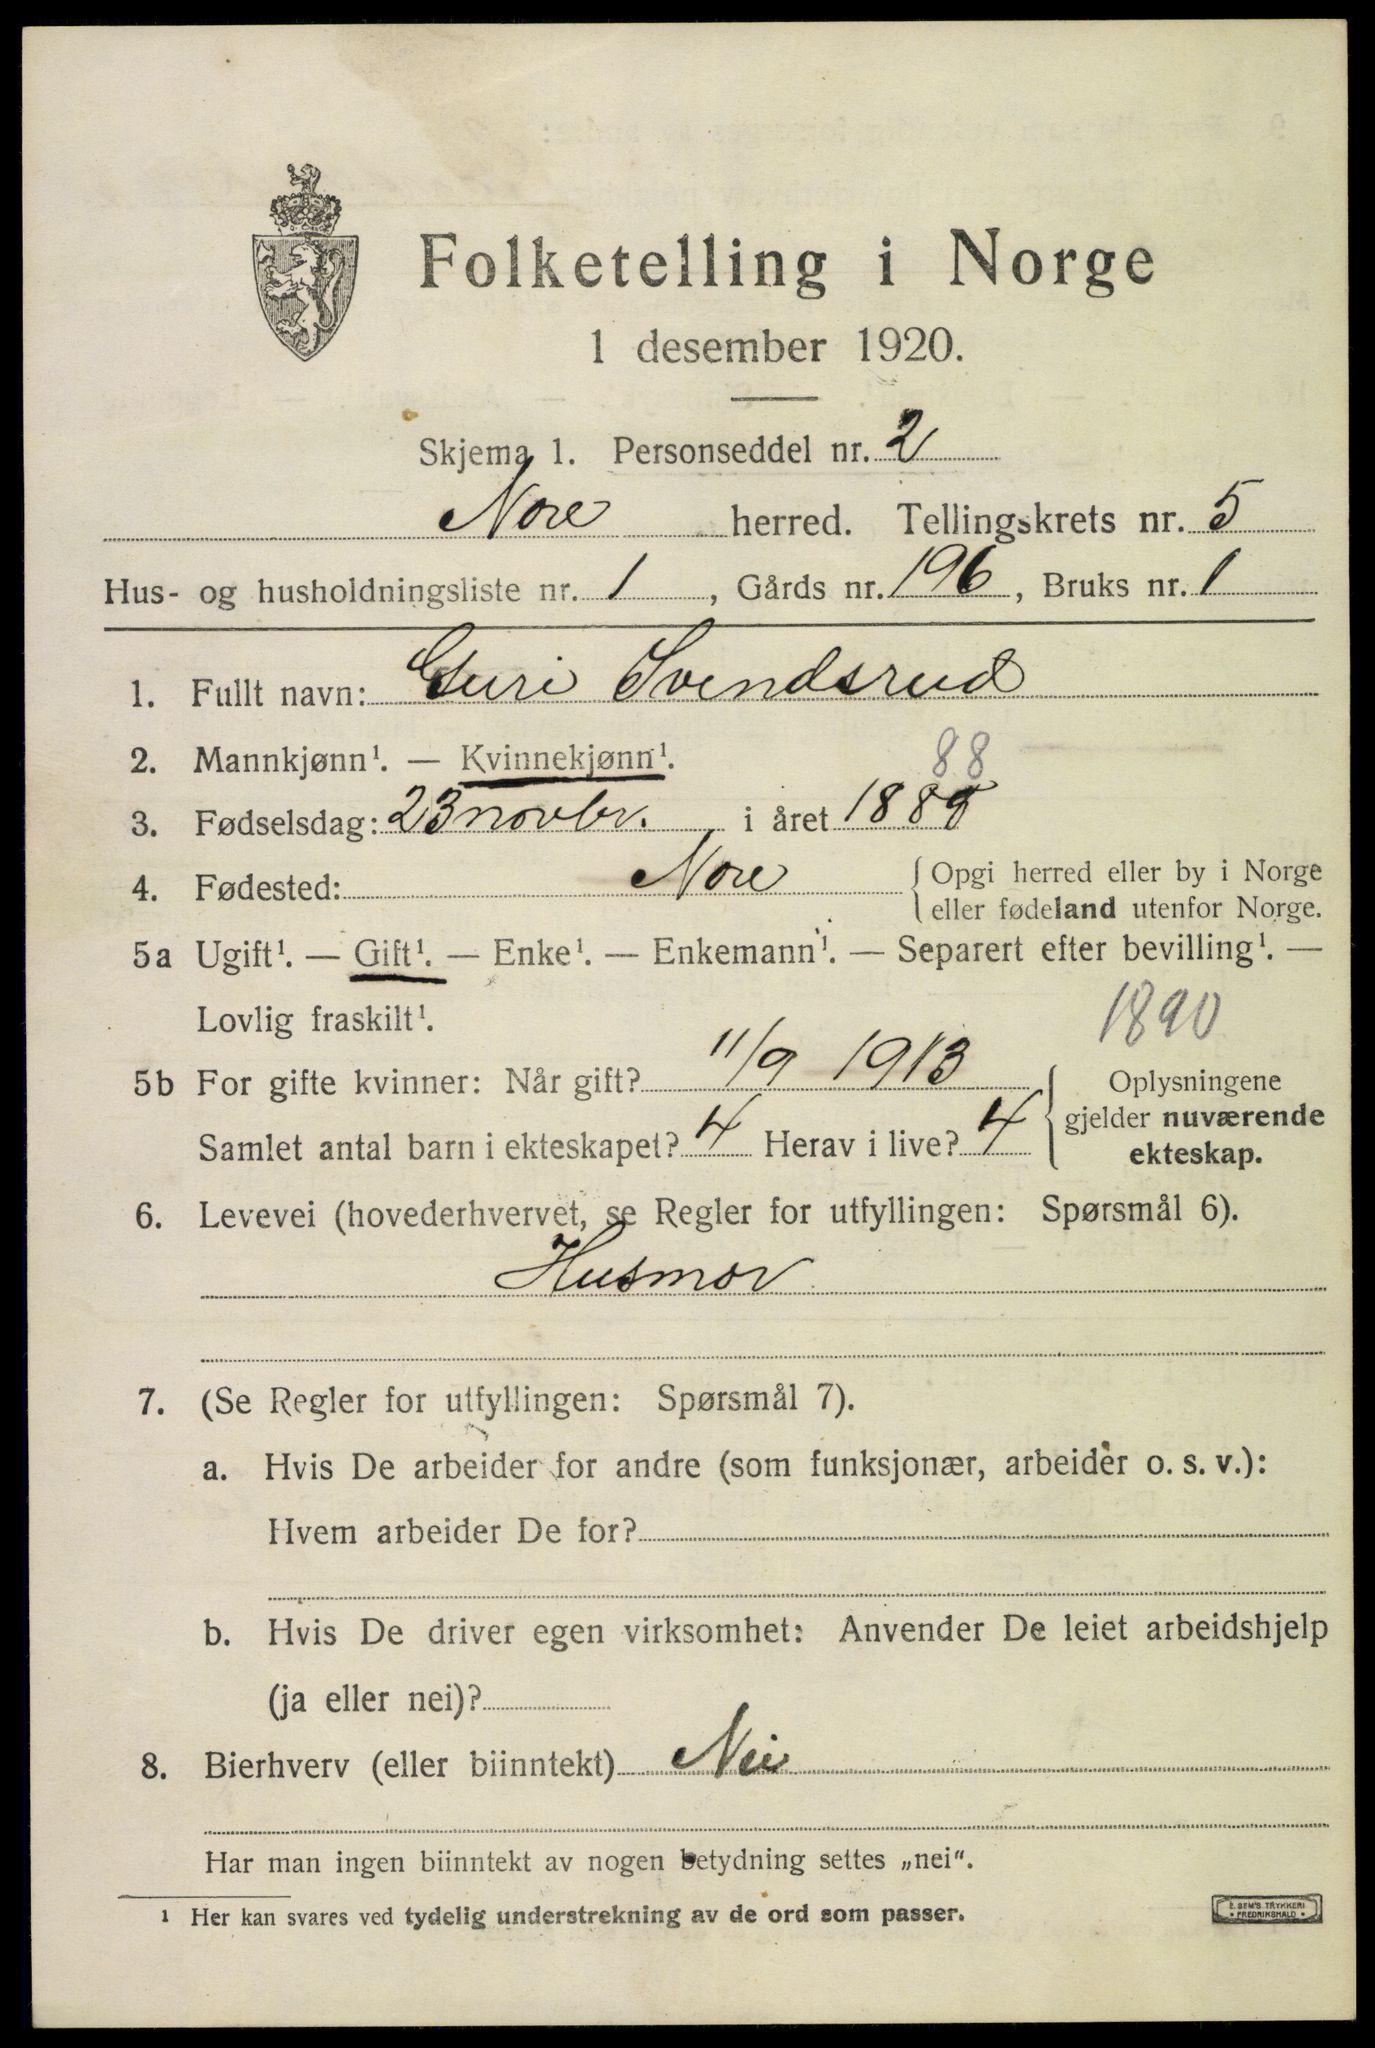 Folketelling i Norge
1 desember 1920.
Skjema 1. Personseddel nr. 2
Nore herred. Tellingskrets nr. 5
Hus- og husholdningsliste nr. 1, Gårds nr. 196, Bruks nr. 1
1. Fullt navn: Guri Svendsrud
2. Mannkjønn¹. — Kvinnekjønn¹.
88
3. Fødselsdag: 23 novbr. i året 1888
4. Fødested: Nore { Opgi herred eller by i Norge
eller fødeland utenfor Norge.
5a Ugift¹. — Gift¹. — Enke¹. — Enkemann¹. — Separert efter bevilling¹. —
Lovlig fraskilt¹. 1890
5b For gifte kvinner: Når gift? 11/9 1913 { Oplysningene
gjelder nuværende
Samlet antal barn i ekteskapet? 4 Herav i live? 4 ekteskap.
6. Levevei (hovederhvervet, se Regler for utfyllingen: Spørsmål 6).
Husmor
7. (Se Regler for utfyllingen: Spørsmål 7).
a. Hvis De arbeider for andre (som funksjonær, arbeider o. s. v.):
Hvem arbeider De for?
b. Hvis De driver egen virksomhet: Anvender De leiet arbeidshjelp
(ja eller nei)?
8. Bierhverv (eller biinntekt) Nei
Har man ingen biinntekt av nogen betydning settes „nei".
¹ Her kan svares ved tydelig understrekning av de ord som passer.
E. SEM'S TRYKKERI
FREDRIKSHALD